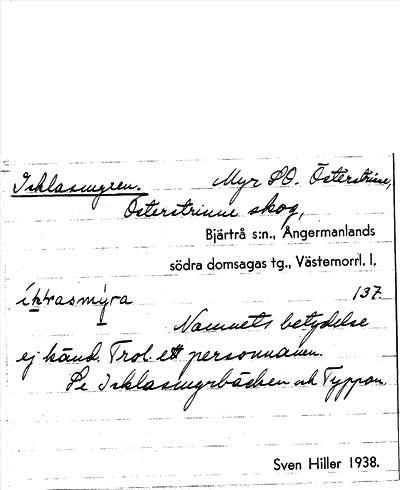 Isklasmyren. Myr SO. Österstrinne,
Österstrinne skog,
Bjärtrå s:n., Ångermanlands
södra domsagas tg., Västernorrl. l,
137.
Namnets betydelse
ej känd. Trol. ett personnamn.
Se Isklasmyrbäcken och Typpon.
Sven Hiller 1938.